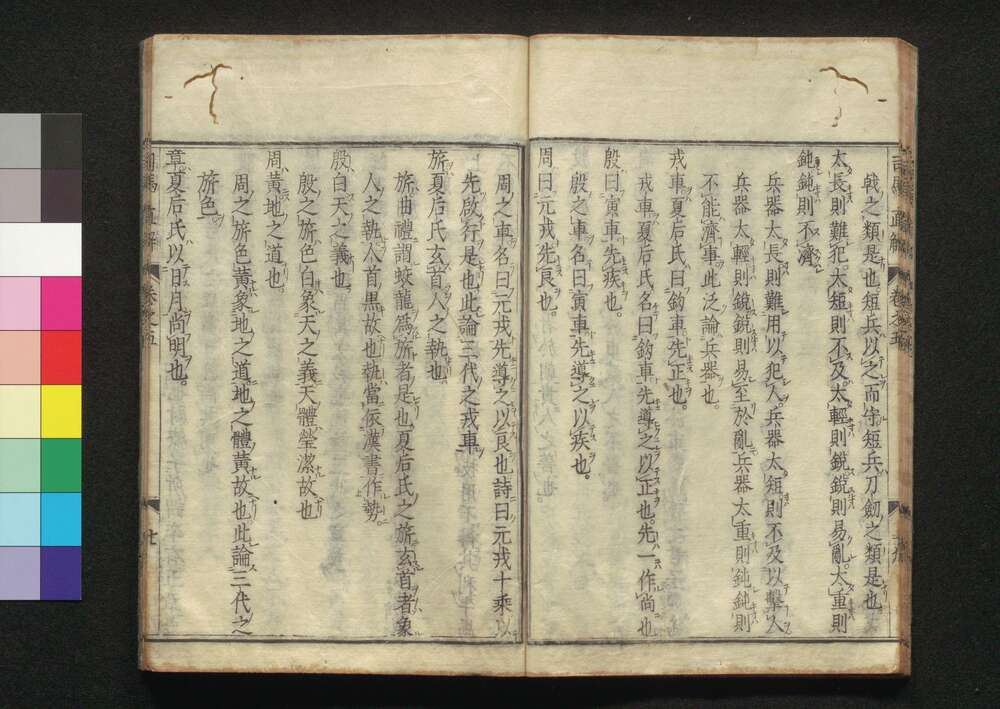 戟之類是也短兵以之而守短兵刀劒之類是也
太長則難犯。太短則不及。太輕則銳銳則易亂。太重則
鈍鈍則不濟
兵器太長則難用以犯人。兵器太短則不及以擊人
兵器太輕則銳銳則易至於亂兵器太重則鈍鈍則
不能濟事此泛論兵器也
戎車夏后氏曰鉤車先正也。
戎車夏后氏名曰鉤車先導之以正也。先一作尚也
殷曰寅車先疾也。
殷之車名曰寅車先導之以疾也。
周曰元戎先良也。
周之車名曰元戎先導之以良也詩曰元戎十乘以
先啟行是也此論三代之戎車
旂夏后氏玄首人之執也
旂曲禮謂蛟龍爲旂者是也夏后氏之旂玄首者象
人之執人首黑故也執當依漢書作勢。
殷白天之義也
殷之旂色白象天之義天體瑩潔故也
周黃地之道也
周之旂色黃象地之道地之體黃故也此論三代之
旂色
章夏后氏以日月尚明也。
司馬 直解 卷之五 廿